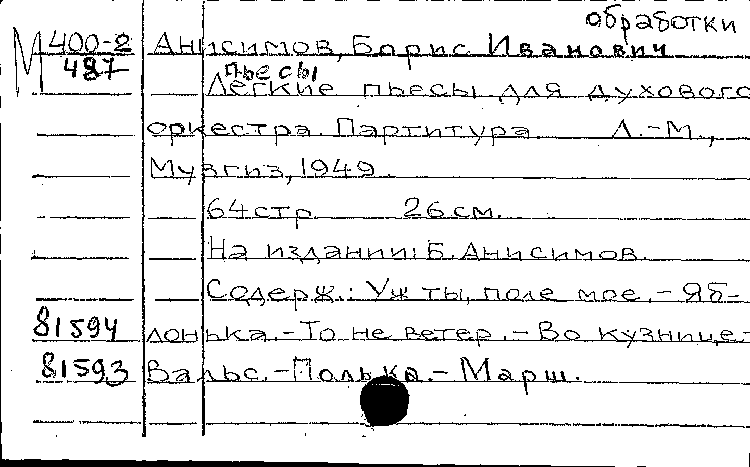 обработки
М 400-2 Анисимов, Борис Иванович
487 пьесы
Легкие пьесы для духового
оркестра. Партитура. Л.-М.,
Музгиз, 1949.
64 стр. 26 см.
На издании: Б. Анисимов.
Содерж.: Уж ты, поле мое.-Яб-
81594 лонька.-То не ветер.-Во кузнице-
81593 Вальс.-Полька.-Марш.